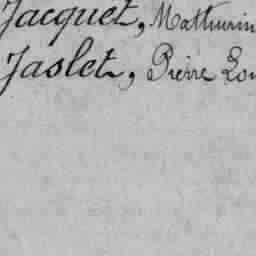 Jacquet, Mathurin
Jaslet, Pierre Lou